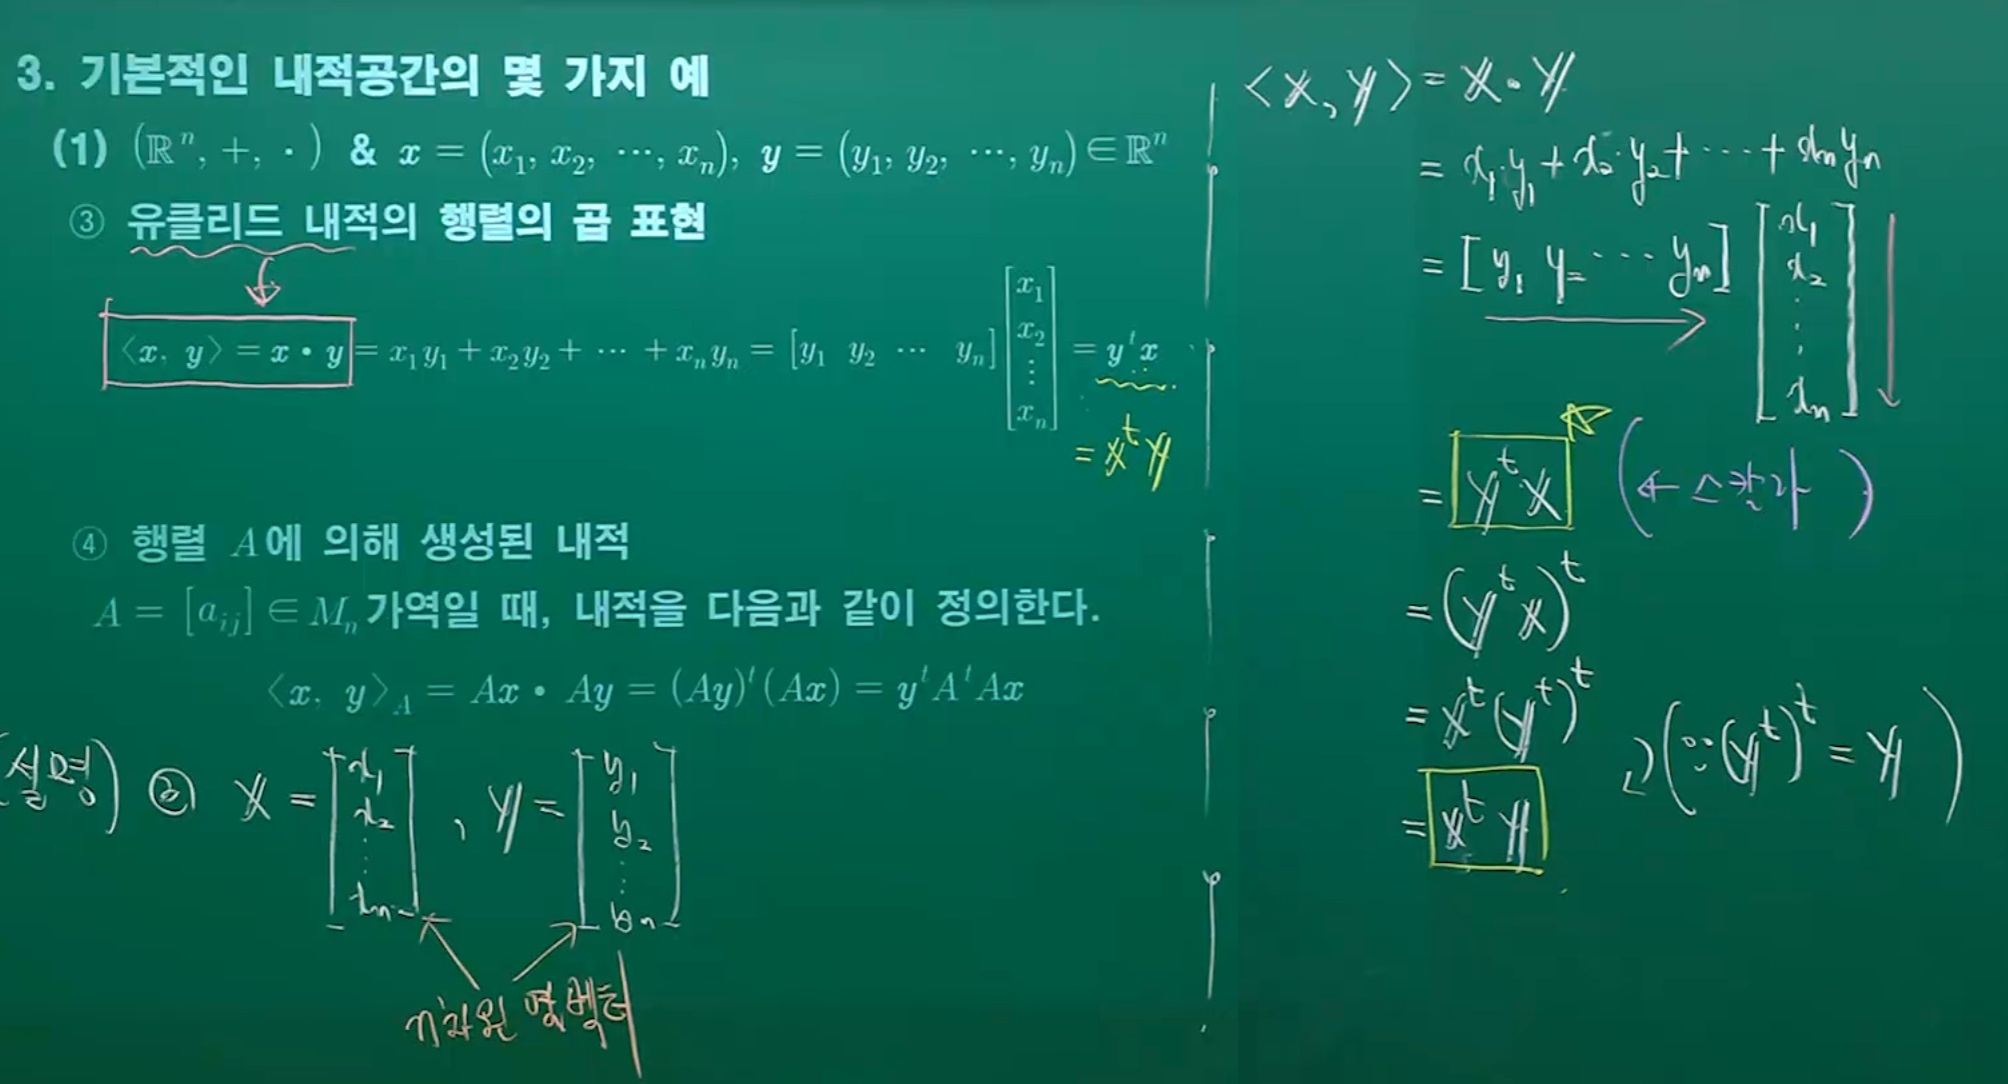 3. 기본적인 내적공간의 몇 가지 예
(1) (ℝⁿ, +, ·) & x = (x₁, x₂, ⋯, xₙ), y = (y₁, y₂, ⋯, yₙ) ∈ ℝⁿ
③ 유클리드 내적의 행렬의 곱 표현
⟨x, y⟩ = x • y = x₁y₁ + x₂y₂ + ⋯ + xₙyₙ = [y₁ y₂ ⋯ yₙ] [x₁ x₂ ⋮ xₙ] = yᵗx
= xᵗy
④ 행렬 A에 의해 생성된 내적
A = [aᵢⱼ] ∈ Mₙ 가역일 때, 내적을 다음과 같이 정의한다.
⟨x, y⟩_A = Ax • Ay = (Ay)ᵗ(Ax) = yᵗAᵗAx
(설명) ② x = [x₁ x₂ ⋮ xₙ], y = [y₁ y₂ ⋮ yₙ]
n차원 열벡터
⟨x, y⟩ = x · y
= x₁·y₁ + x₂·y₂ + ⋯ + xₙyₙ
= [y₁ y₂ ⋯ yₙ] [x₁ x₂ ⋮ xₙ]
= yᵗ·x (← 스칼라)
= (yᵗx)ᵗ
= xᵗ(yᵗ)ᵗ (∵ (yᵗ)ᵗ = y)
= xᵗy